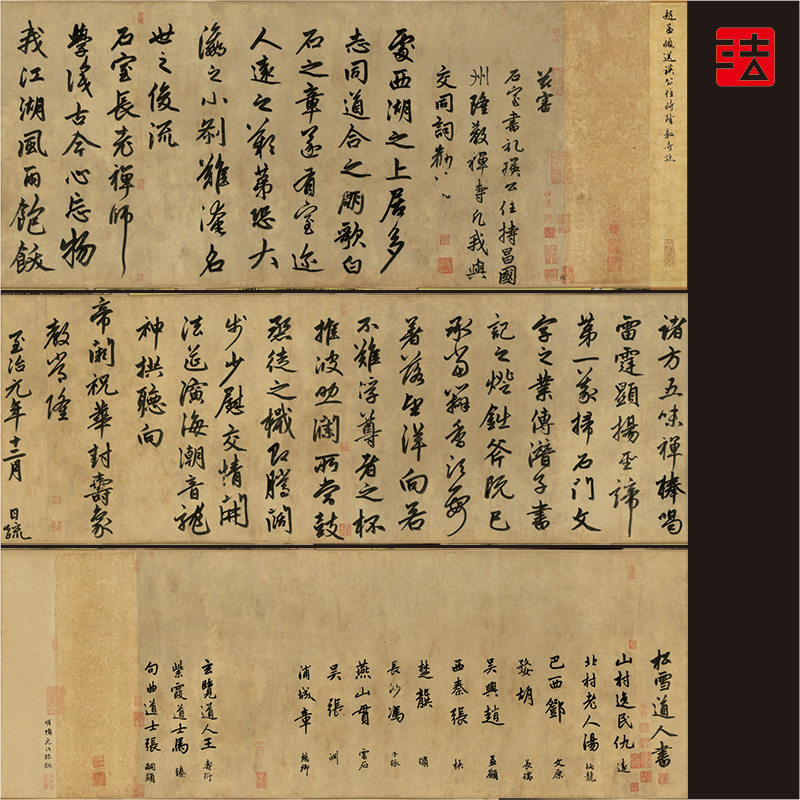 法
趙孟頫送瑛公住持隆教寺疏
茲審
石室書記瑛公住持昌國
州隆教禪寺凡我與
交同詞勸
處西湖之上居多
志同道合之朋歌白
石之章遂有室邇
人遠之歎第恐大
瀛之小剎難淹名
世之俊流
石室長老禪師
學識古今心忘物
我江湖風雨飽飯
諸方五味禪棒喝
雷霆顯揚聖諦
第一義掃石門文
字之業傳潛子書
記之燈鈯斧既已
承當瓣香須要
著落望洋向若
不難浮尊者之杯
推波助瀾所賞鼓
烝徒之檝即騰闊
步少慰交情開
法筵演海潮音龍
神拱聽向
帝闕祝華封壽象
教常隆
至治元年十二月 日疏
松雪道人書
山村逸民仇遠
北村老人湯炳龍
巴西鄧文原
婺胡長孺
吳興趙孟頫
西秦張楧
楚龔璛
長沙馮子振
燕山貫雲石
吳張淵
浦城章懋卿
玄覽道人王壽衍
紫霞道士馬臻
句曲道士張嗣顯